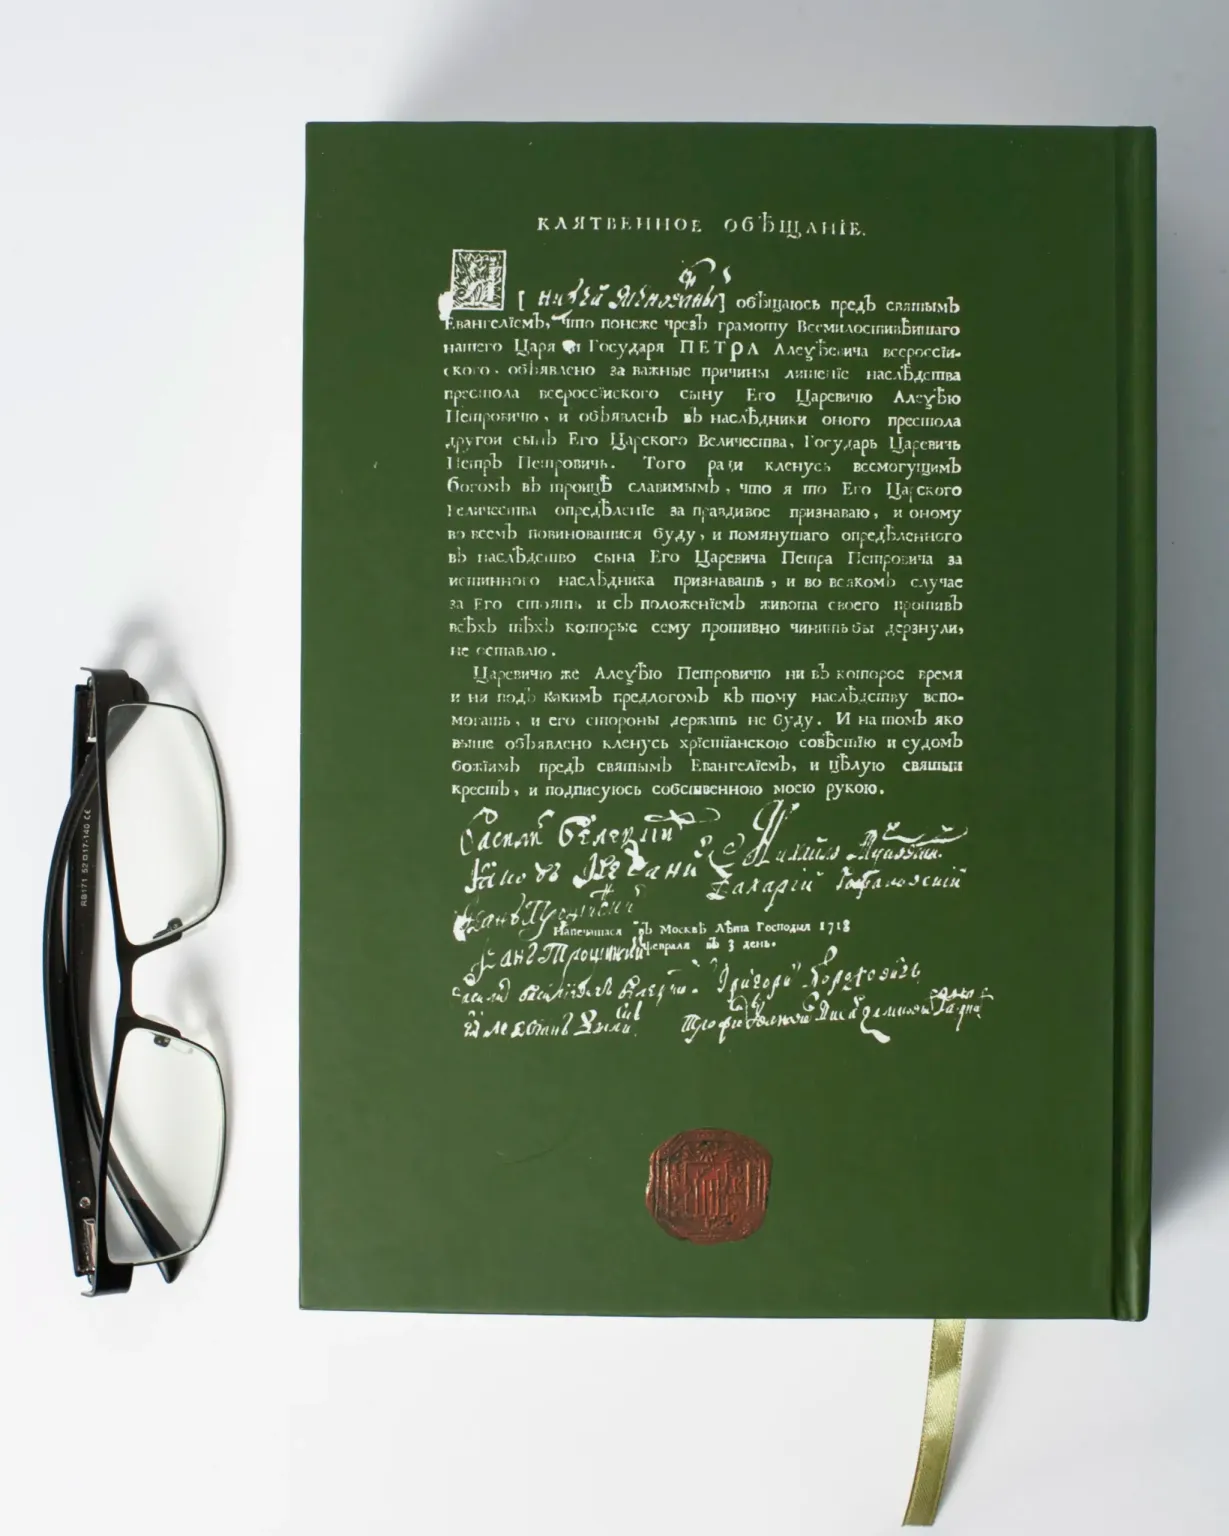 КЛЯТВЕННОЕ ОБѢЩАНІЕ.
[ нижей Имѧнованны] обѣщаюсь предъ святымъ
Евангелїемъ, что понеже чрезъ грамоту Всемилостивѣишаго
нашего Царя и Государя ПЕТРА Алеѯѣевича всероссїи-
ского. объявлено за важные причины лишенїе наслѣдства
престола всероссїиского сыну Его Царевичю Алеѯѣю
Петровичю, и объявленъ въ наслѣдники оного престола
другои сынъ Его Царского Величества, Государь Царевичь
Петръ Петровичь. Того ради кленусь всемогущимъ
богомъ въ троицѣ славимымъ, что я то Его Царского
Величества опредѣленїе за правдивое признаваю, и оному
во всемъ повиноватися буду, и помянутаго опредѣленного
въ наслѣдство сына Его Царевича Петра Петровича за
истинного наслѣдника признавать, и во всякомъ случае
за Его стоять и съ положенїемъ живота своего противъ
всѣхъ тѣхъ которые сему противно чинить бы дерзнули,
не оставлю.
Царевичю же Алеѯѣю Петровичю ни въ которое время
и ни подъ какимъ предлогомъ къ тому наслѣдству вспо-
могать, и его стороны держать не буду. И на томъ яко
выше объявлено кленусь хрїстїанскою совѣстїю и судомъ
божїимъ предъ святымъ Евангелїемъ, и цѣлую святыи
крестъ, и подписуюсь собственною моею рукою.
Михайло
Захарїй
Напечатася въ Москвѣ Лѣта Господня 1718
Февраля въ 3 день.
Григори
RB171 52□17-140 CE